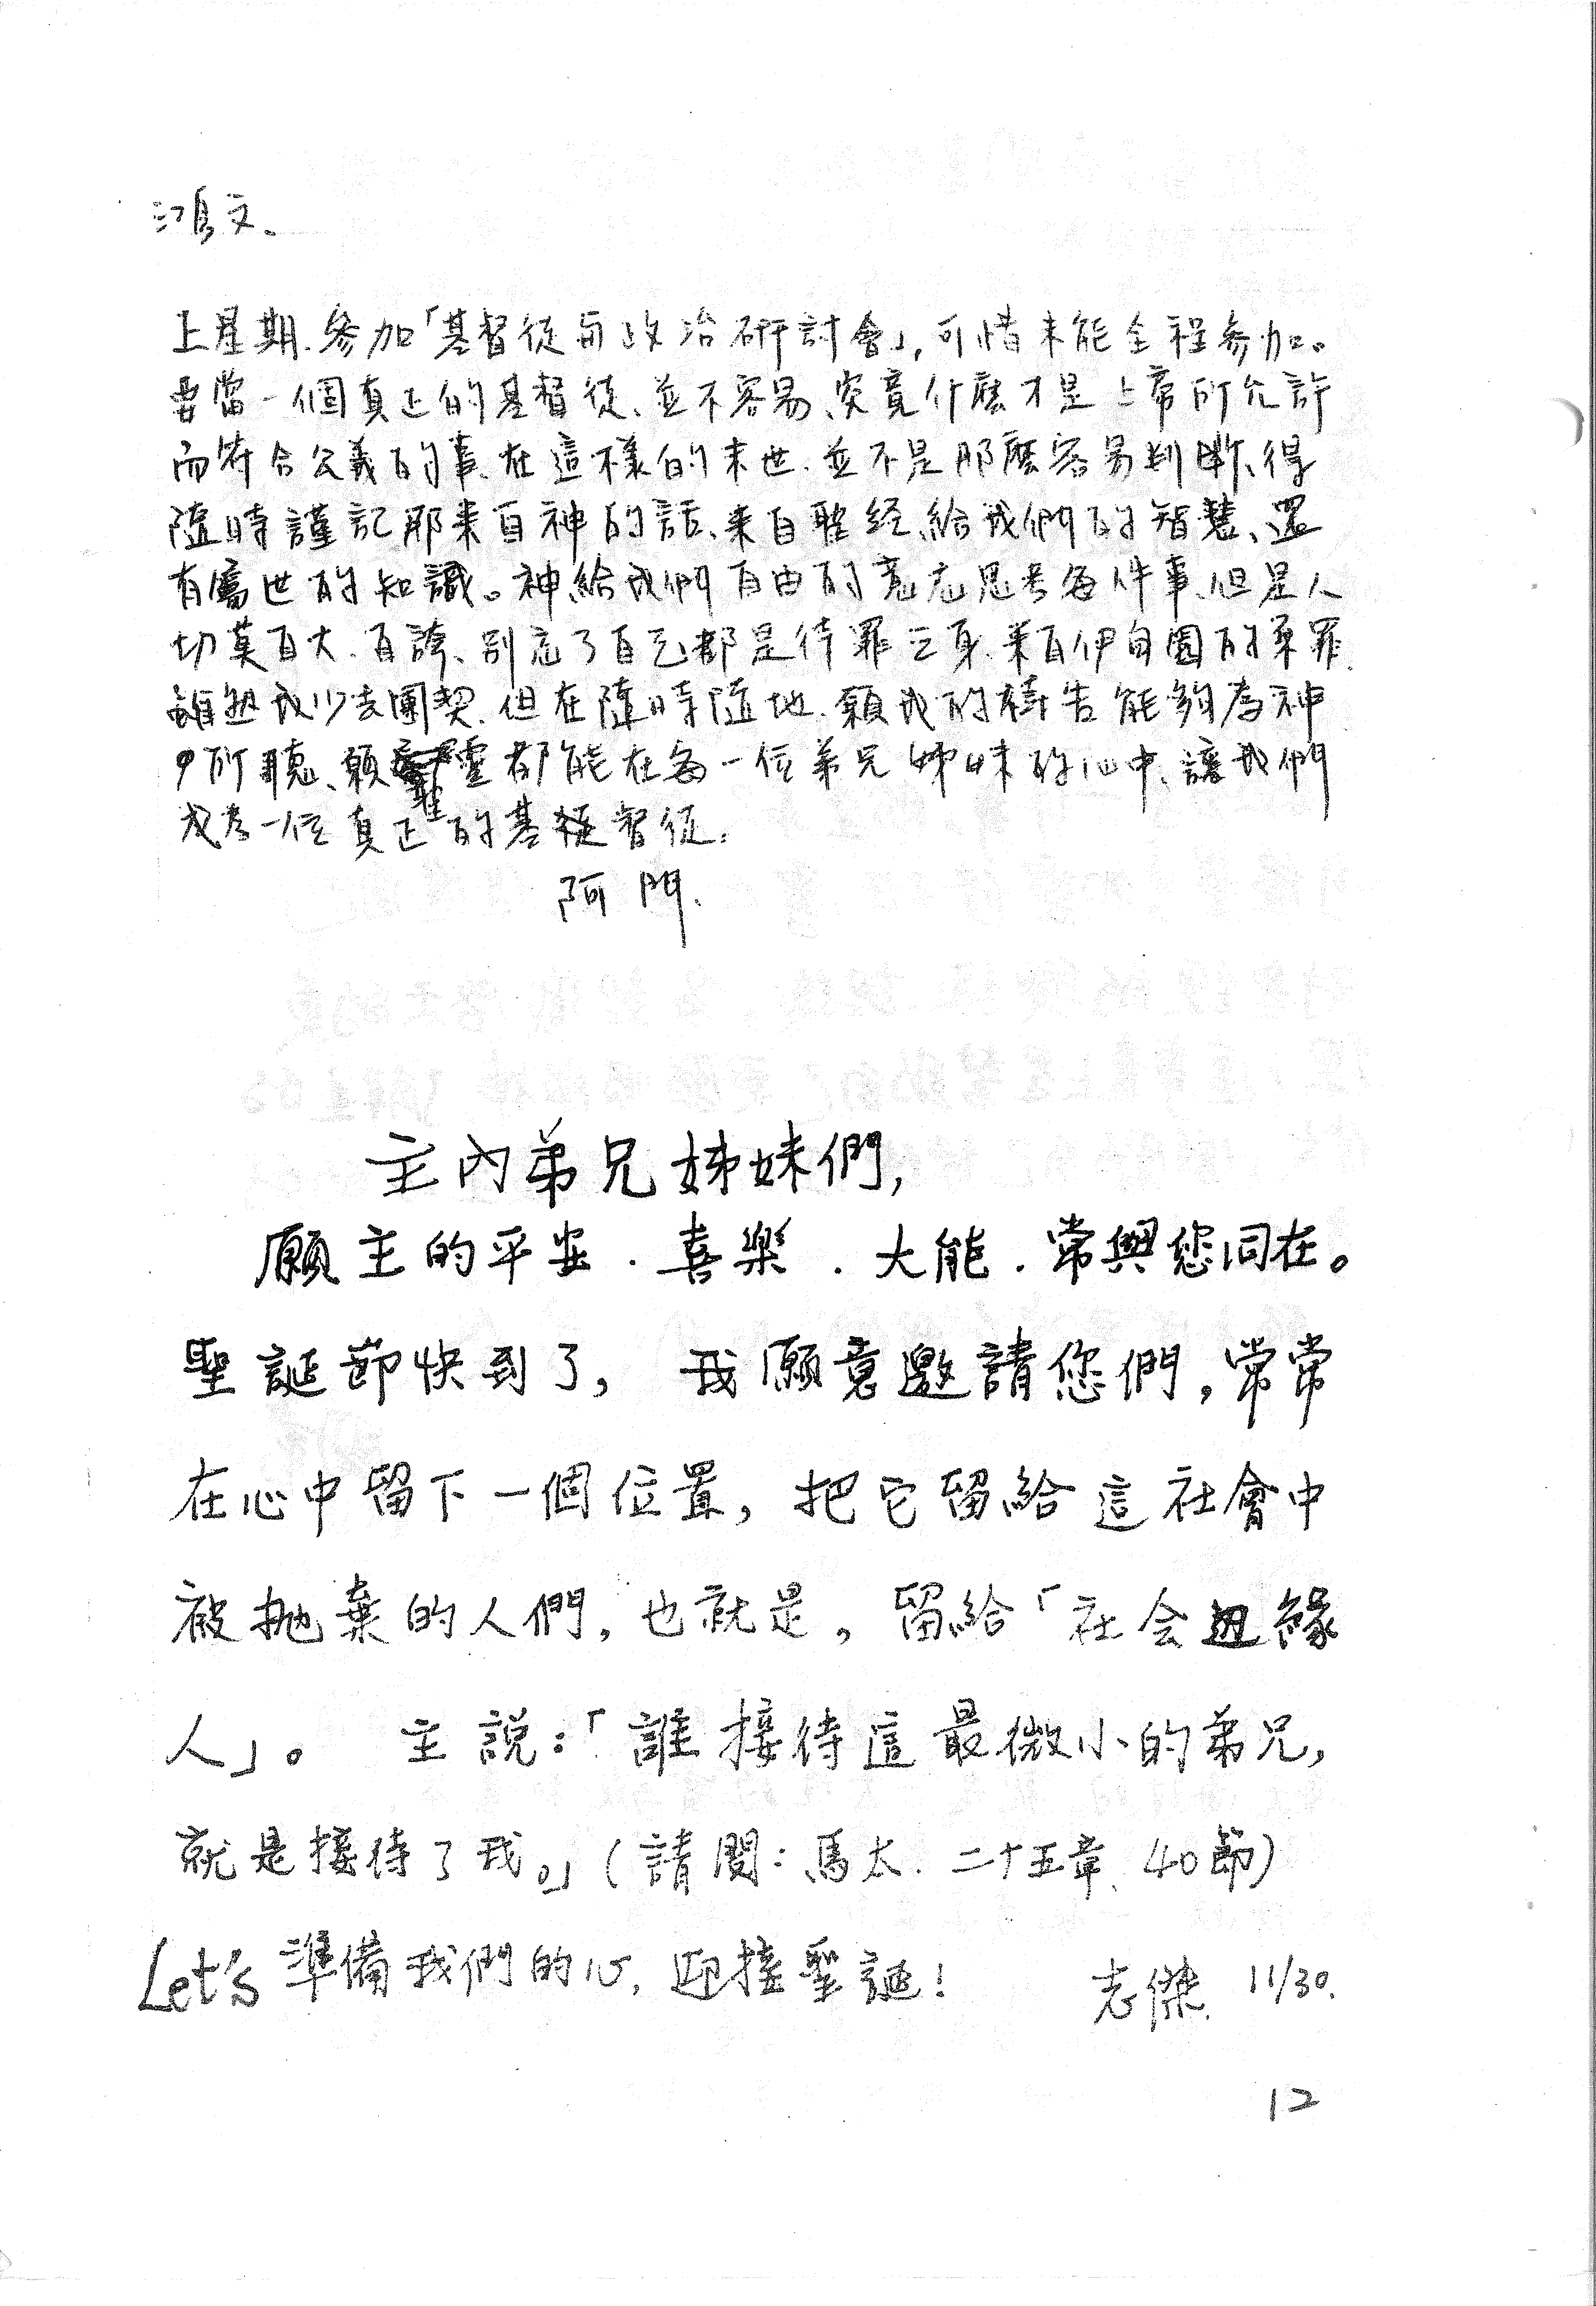 鴻文、
上星期、參加「基督徒與政治研討會」,可惜未能全程參加。
要當一個真正的基督徒、並不容易、究竟什麼才是上帝所允許
而符合公義的事、在這樣的末世、並不是那麼容易判斷、得
隨時謹記那來自神的話、來自聖經、給我們的智慧、還
有屬世的知識。神給我們自由的意志思考每件事、但是人
切莫自大、自誇、別忘了自己都是待罪之身、來自伊甸園的原罪、
雖然我少去團契、但在隨時隨地、願我的禱告能夠為神
所聽、願聖靈都能在每一位弟兄姊妹的心中、讓我們
成為一位真正的基督徒。
阿門、
主內弟兄姊妹們,
願主的平安．喜樂．大能．常與您同在。
聖誕節快到了, 我願意邀請您們,常常
在心中留下一個位置,把它留給這社會中
被拋棄的人們,也就是,留給「社会边緣
人」。 主說:「誰接待這最微小的弟兄,
就是接待了我。」(請閱:馬太．二十五章、40節)
Let's 準備我們的心,迎接聖誕! 志傑. 11/30.
12